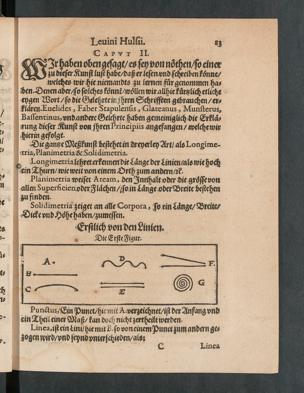 Levini Hulsii. 23
CAPUT II.
WIr haben oben gesagt / es sey von nöthen / so einer
zu dieser Kunst lust habe / daß er lesen vnd schreiben könne /
welches wir hie niemandts zu lernen fürgenommen ha-
ben. Denen aber / so solches könnẽ / wöllen wir allhie kürtzlich etliche
eygen Wort / so die Gelehrte in jhren Schrifften gebrauchen / er-
klären. Euclides, Faber Stapulensis, Glareanus, Munsterus,
Bassentinus, vnd andere Gelehrte haben gemeiniglich die Erklä-
rung dieser Kunst von jhren Principiis angefangen / welche wir
hierin gefolgt.
Die gantze Meßkunst bestehet in dreyerley Art / als Longime-
tria, Planimetria & Solidimetria.
Longimetria lehret erkennen die Länge der Linien / als wie hoch
ein Thurn / wie weit von einem Orth zum andern / ꝛc.
Planimetria weiset Aream, den Innhalt oder die grösse von
allen Superficien oder Flächen / so in Länge oder Breite bestehen
zu finden.
Solidimetria zeiget an alle Corpora, so ein Länge / Breite /
Dicke vnd Höhe haben / zumessen.
Erstlich von den Linien.
Die Erste Figur.
A
B
C
D
E
F
G
Punctus / Ein Punct / hie mit A. verzeichnet / ist der Anfang vnd
ein Theil einer Maß / kan doch nicht zertheilt werden.
Linea, ist ein Lini / hie mit B. so von einem Punct zum andern ge-
zogen wird / vnd seynd vnterschieden / als:
C Linea